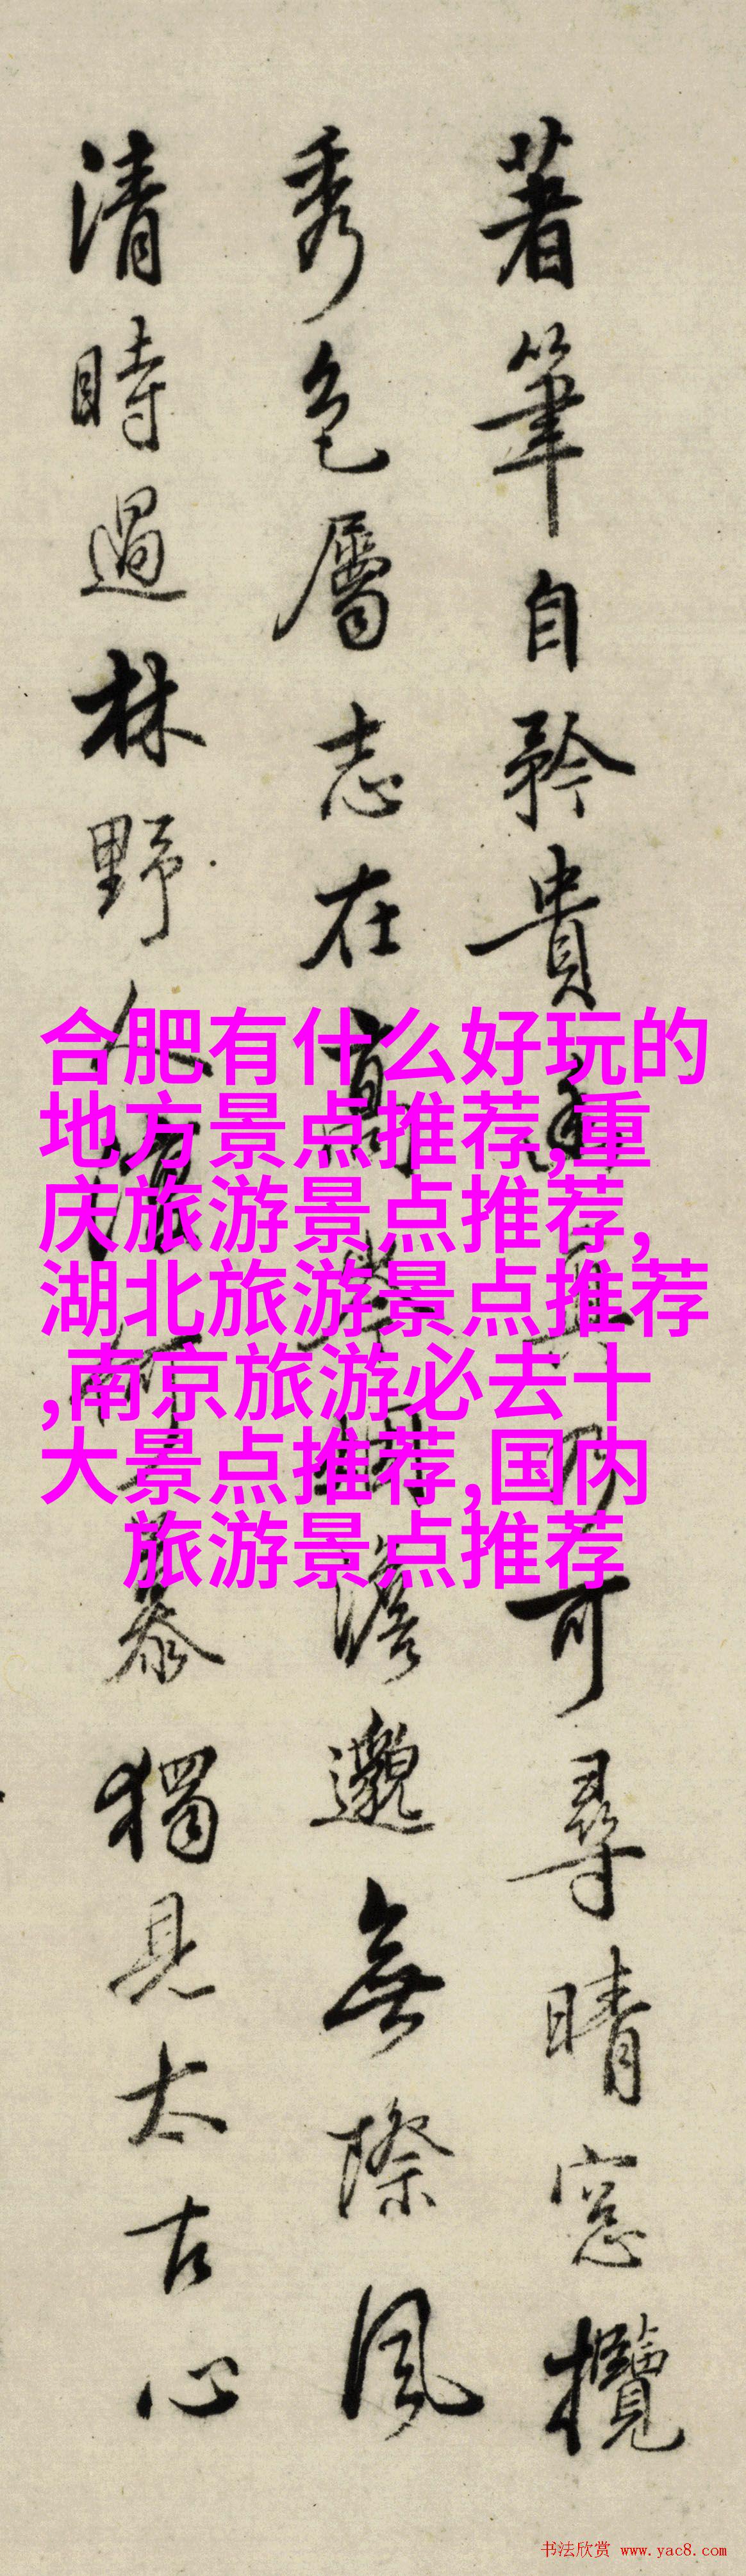 著筆自矜貴
可尋晴窓攬
秀色屬志在高
澹邈無際風
清時過林野人
慕獨見太古心
合肥有什么好玩的
地方景点推荐,重
庆旅游景点推荐,
湖北旅游景点推荐
,南京旅游必去十
大景点推荐,国内
旅游景点推荐
书法欣赏 www.yac8.com